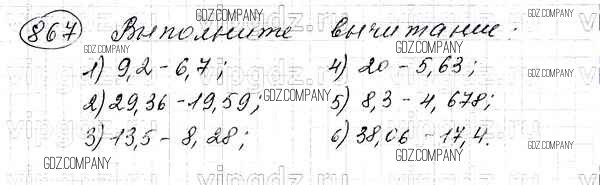 GDZ.COMPANY
867 Выполните вычитание.
GDZ.COMPANY GDZ.COMPANY
1) 9,2 - 6,7; 4) 20 - 5,63;
GDZ.COMPANY
2) 29,36 - 19,59; GDZ.COMPANY 5) 8,3 - 4,678;
vipgdz.ru
3) 13,5 - 8,28; 6) 38,06 - 17,4.
GDZ.COMPANY GDZ.COMPANY